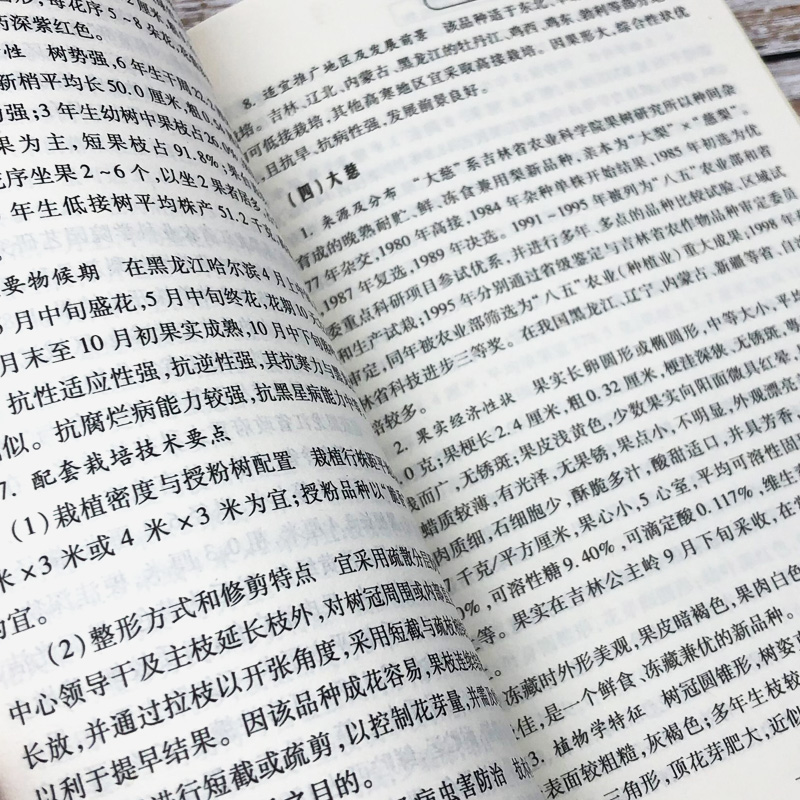 形,每花序5~8朵花,
药深紫红色。
性 树势强,6年生干周22.
新梢平均长50.0厘米,粗0.5
力强;3年生幼树中果枝占26.0%
果为主,短果枝占91.8%;果台
花序坐果2~6个,以坐2果者居多
年生低接树平均株产51.2千克
要物候期 在黑龙江哈尔滨4月上
月中旬盛花,5月中旬终花,花期10
月末至10月初果实成熟,10月中下旬
抗性适应性强,抗逆性强,其抗寒力与
似。抗腐烂病能力较强,抗黑星病能力中
7. 配套栽培技术要点
(1)栽植密度与授粉树配置 栽植行株距
米×3米或4米×3米为宜;授粉品种以
为宜。
(2)整形方式和修剪特点 宜采用疏散分层
中心领导干及主枝延长枝外,对树冠周围或内膛
长放,并通过拉枝以开张角度,采用短截与疏
以利于提早结果。因该品种成花容易,果枝连续
进行短截或疏剪,以控制花芽量,并需
之目的。
病虫害防治 抗
8. 适宜推广地区及发展前景 该品种适于东北、
培。吉林、辽北、内蒙古、黑龙江的牡丹江、鸡西、鸡东、勃利等部分地
可低接栽培,其他高寒地区宜采取高接栽培。因果形大,综合性状优
且抗旱、抗病性强,发展前景良好。
(四)大慈
1. 来源及分布 “大慈”系吉林省农业科学院果树研究所以种间杂
育成的晚熟耐贮、鲜、冻食兼用梨新品种,亲本为“大梨”×“慈梨”。
77年杂交,1980年高接,1984年杂种单株开始结果,1985年初选为优
,1987年复选,1989年决选。1991~1995年被列为“八五”农业部和省
委重点科研项目参试优系,并进行多年、多点的品种比较试验、区域试
和生产试栽;1995年分别通过省级鉴定与吉林省农作物品种审定委员
审定,同年被农业部筛选为“八五”农业(种植业)重大成果;1998年
林省科技进步三等奖。在我国黑龙江、辽宁、内蒙古、新疆等省、自
培较多。
2. 果实经济性状 果实长卵圆形或椭圆形,中等大小,平均
0克;果梗长2.4厘米,粗0.32厘米,梗洼深狭,无锈斑,
浅而广,无锈斑;果皮浅黄色,少数果实向阳面微具红晕,
蜡质较薄,有光泽,无果锈,果点小,不明显,外观漂亮
肉质细,石细胞少,酥脆多汁,酸甜适口,并具芳香
千克/平方厘米,果心小,5心室,平均可溶性固
%,可溶性糖9.40%,可滴定酸0.117%,维生
等。果实在吉林公主岭9月下旬采收,在
。
冻藏时外形美观,果皮暗褐色,果肉白色
佳,是一个鲜食、冻藏兼优的新品种。
3. 植物学特征 树冠圆锥形,树姿
表面较粗糙,灰褐色;多年生枝较
三角形,顶花芽肥大,近似